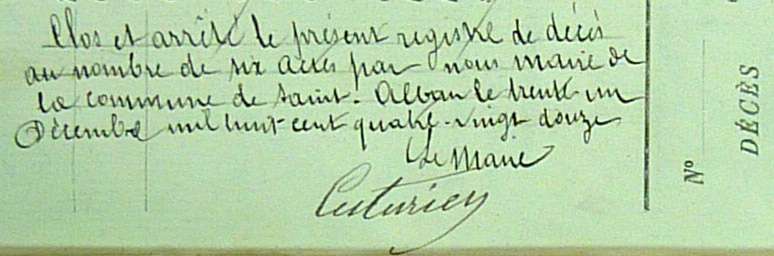 Clos et arrêté le présent registre de décès
au nombre de six actes par nous maire de
la commune de Saint-Alban le trente un
Décembre mil huit cent quatre-vingt douze
Le Maire
Cuturier
N°
DÉCÈS